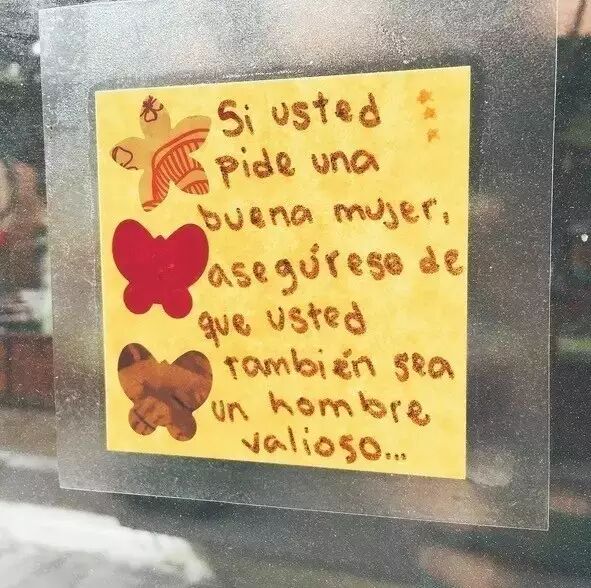 Si usted
pide una
buena mujer,
asegúrese de
que usted
también sea
un hombre
valioso...